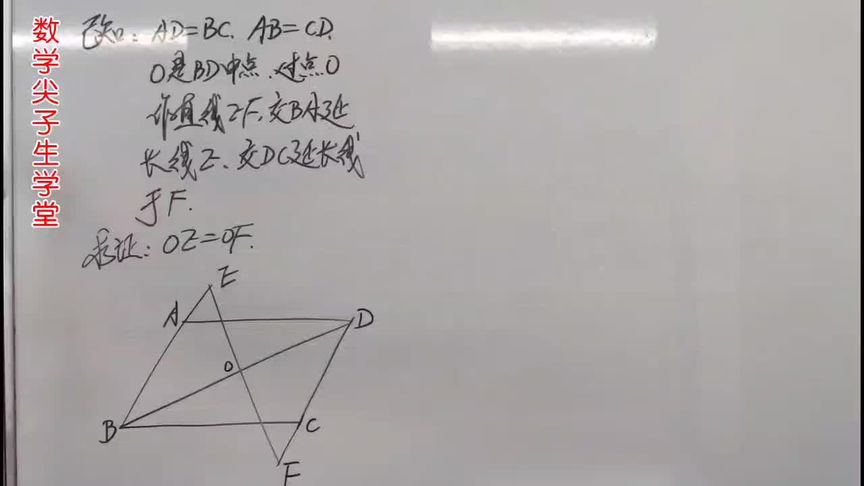 数学尖子生学堂
已知: AD=BC. AB=CD.
O是BD中点. 过点O
作直线EF, 交BA延
长线E. 交DC延长线
于F.
求证: OE=OF.
E
A
D
O
B
C
F